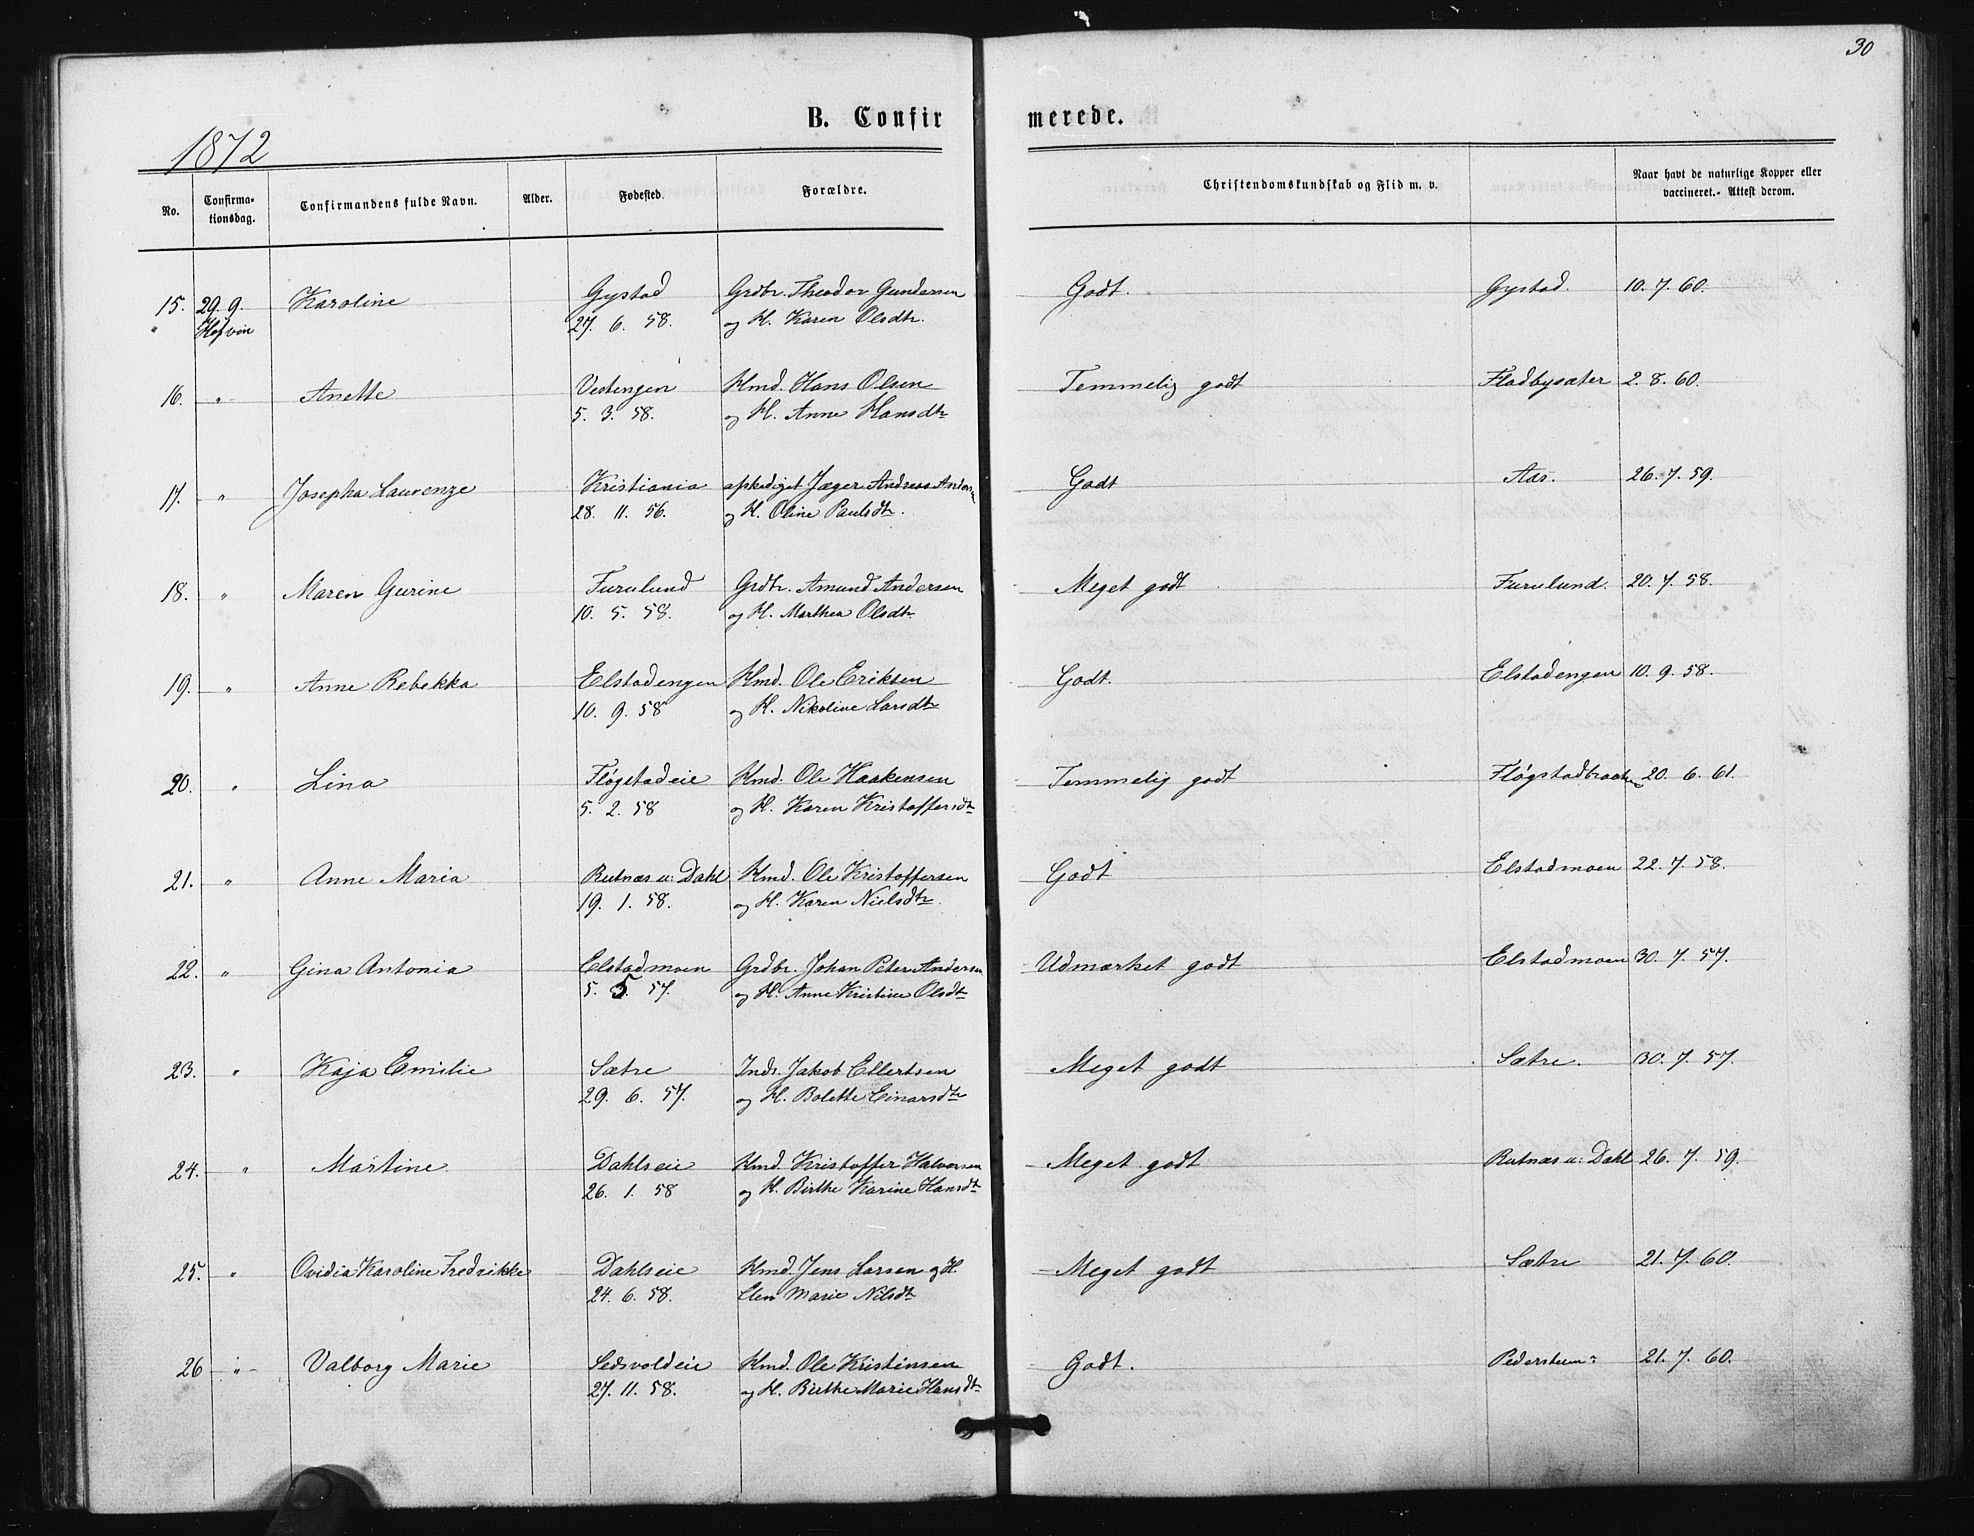 30
1872
B. Confirmerede.
No. Confirmationsdag. Confirmandens fulde Navn. Alder. Fødested. Forældre. Christendomskundskab og Flid m. v. Naar havt de naturlige Kopper eller vaccineret.- Attest derom.
15. 29. 9. Karoline Gystad Grdbr. Theodor Gundersen Godt. Gystad. 10. 7. 60.
" Hofvin 27. 6. 58. og H. Karen Olsdtr.
16. " Anette Vestengen Hmd. Hans Olsen Temmelig godt Fladbysæter 2. 8. 60.
5. 3. 58. og H. Anne Hansdtr
17. " Josepha Laurenze Kristiania afskediget Jæger Andreas Andersen Godt Aas. 26. 7. 59.
28. 11. 56. og H. Oline Paulsdtr.
18. " Maren Gurine Furulund Grdbr. Amund Andersen Meget godt Furulund. 20. 7. 58.
10. 5. 58. og H. Marthea Olsdtr
19. " Anne Rebekka Elstadengen Hmd. Ole Eriksen Godt. Elstadengen 10. 9. 58.
10. 9. 58 og H. Nikoline Larsdtr
20. " Lina Fløgstadeie Hmd. Ole Haakensen Temmelig godt Fløgstadbraaten 20. 6. 61.
5. 2. 58 og H. Karen Kristoffersdtr
21. " Anne Maria Rutnæs u: Dahl Hmd. Ole Kristoffersen Godt Elstadmoen 22. 7. 58.
19. 1. 58. og H. Karen Nielsdtr.
22. " Gina Antonia Elstadmoen Grdbr. Johan Peter Andersen Udmærket godt Elstadmoen 30. 7. 57.
5. 5. 57. og H. Anne Kristine Olsdtr
23. " Kaja Emilie Sætre Inds. Jakob Ellertsen Meget godt Sætre. 30. 7. 57.
29. 6. 57. og H. Bolette Einarsdtr
24. " Martine Dahlseie Hmd. Kristoffer Halvorsen Meget godt Rutnæs u: Dahl 26. 7. 59.
26. 1. 58 og H. Birthe Karine Hansdtr
25. " Ovidia Karoline Fredrikke Dahlseie Hmd. Jens Larsen og H. Meget godt Sætre 21. 7. 60.
24. 6. 58. Elen Marie Nilsdtr
26 " Valborg Marie Sedsvoldeie Hmd. Ole Kristensen Godt. 21. 7. 60.
27. 11. 58. og H. Birthe Marie Hansdtr